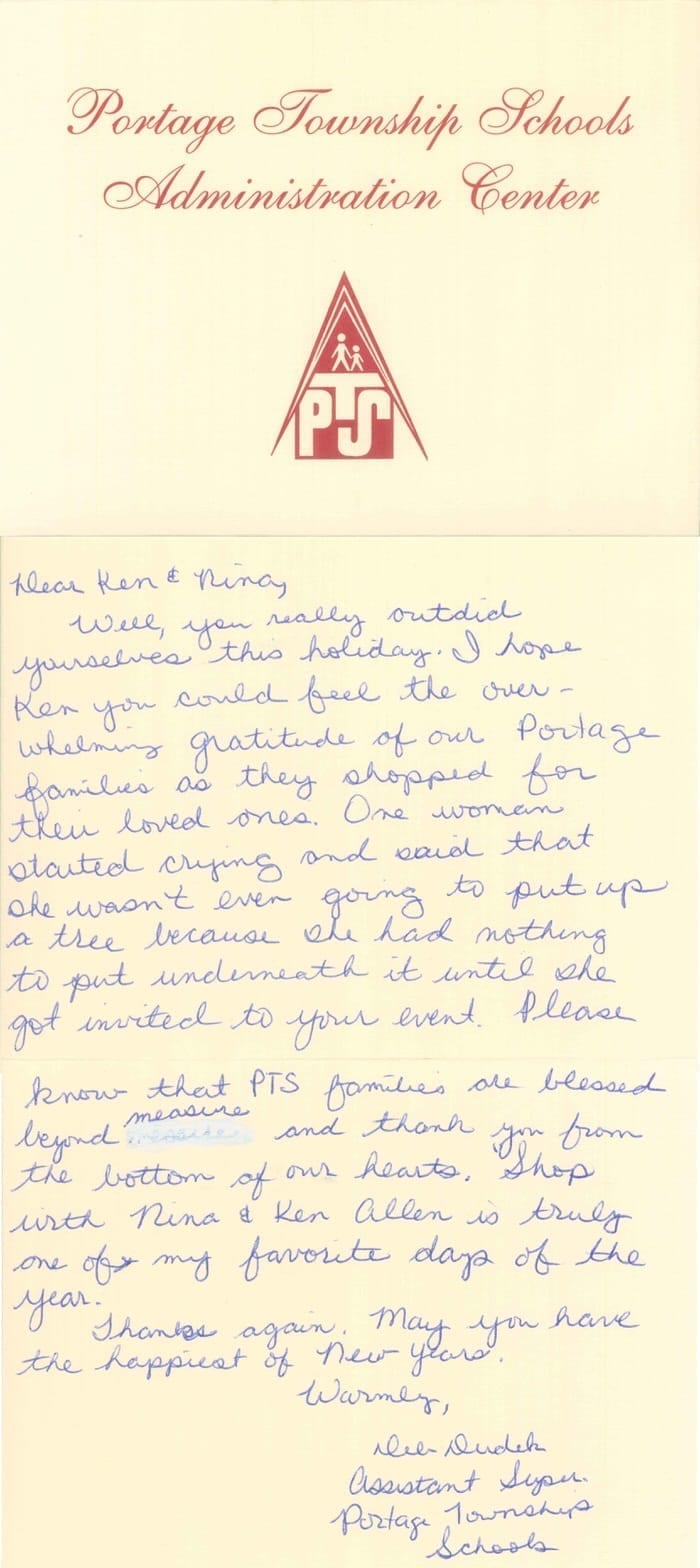 Portage Township Schools
Administration Center
PTS
Dear Ken & Nina,
Well, you really outdid
yourselves this holiday. I hope
Ken you could feel the over-
whelming gratitude of our Portage
families as they shopped for
their loved ones. One woman
started crying and said that
she wasn't even going to put up
a tree because she had nothing
to put underneath it until she
got invited to your event. Please
know that PTS families are blessed
measure
beyond and thank you from
the bottom of our hearts. "Shop
with Nina & Ken Allen is truly
one of my favorite days of the
year.
Thanks again. May you have
the happiest of New Years.
Warmly,
Deb Dudek
Assistant Super.
Portage Township
Schools